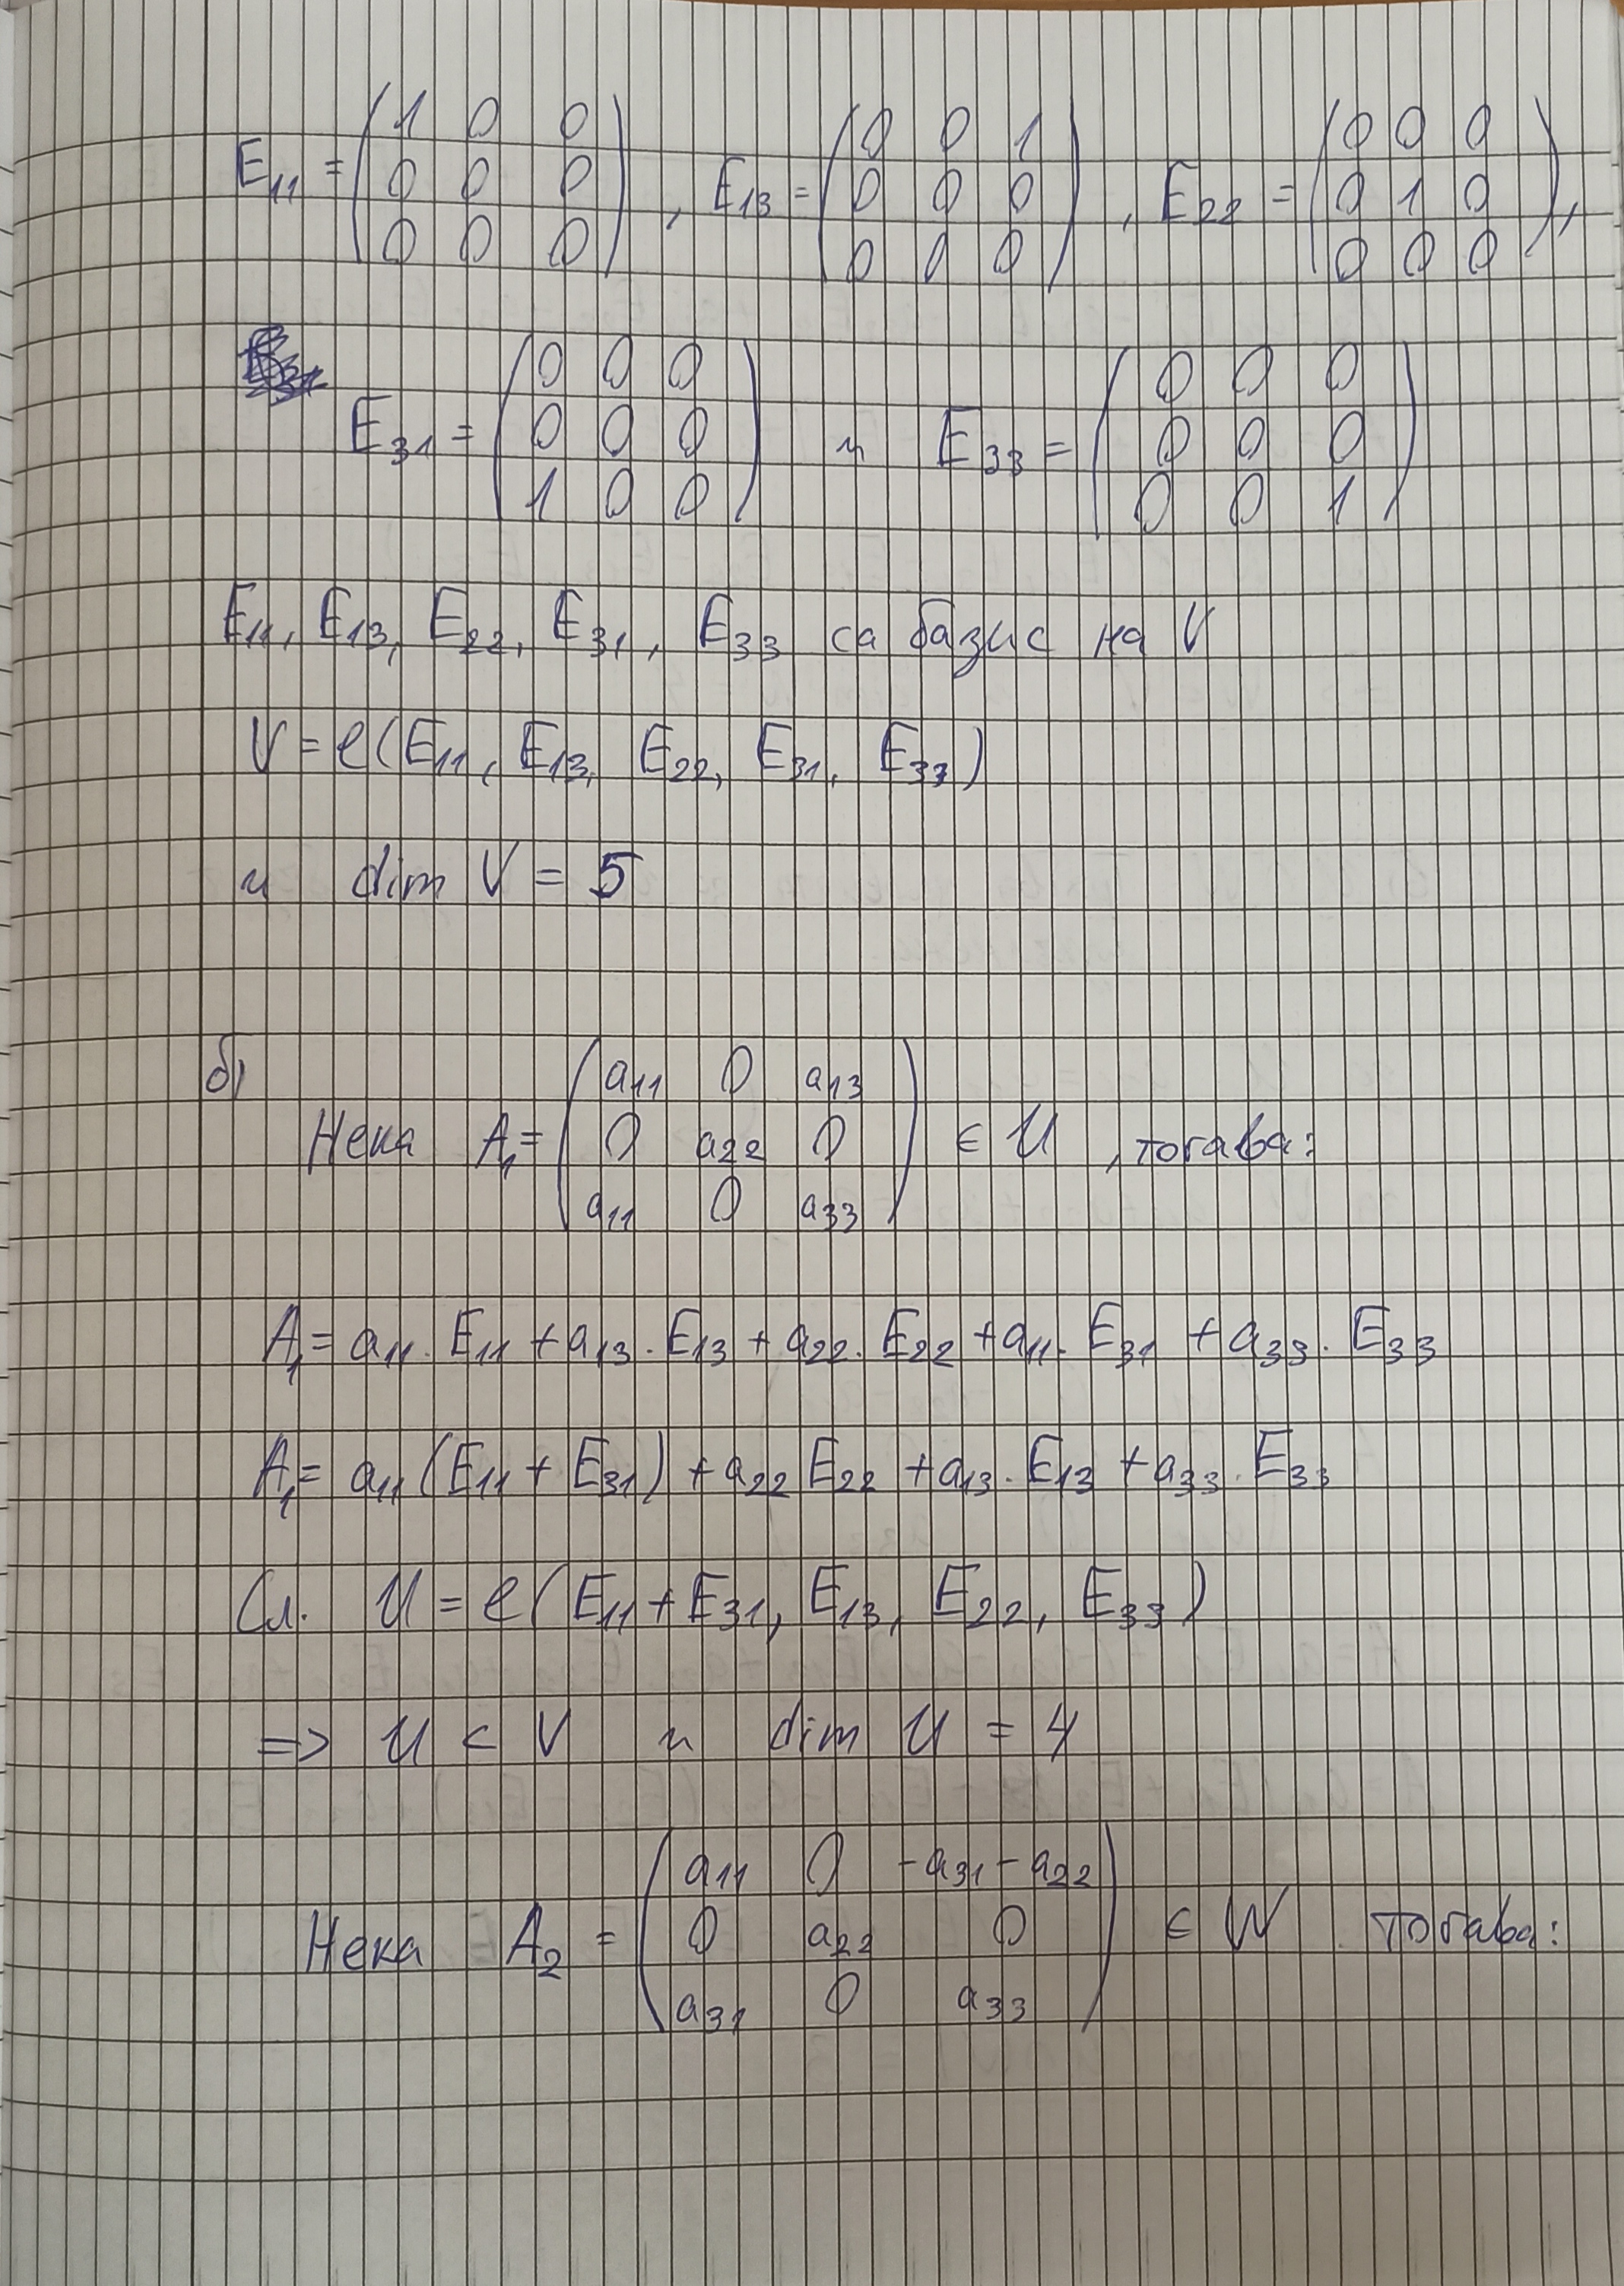 E₁₁ = (1 0 0; 0 0 0; 0 0 0), E₁₃ = (0 0 1; 0 0 0; 0 0 0), E₂₂ = (0 0 0; 0 1 0; 0 0 0),
E₃₁ = (0 0 0; 0 0 0; 1 0 0) и E₃₃ = (0 0 0; 0 0 0; 0 0 1)
E₁₁, E₁₃, E₂₂, E₃₁, E₃₃ са базис на V
V = ℓ(E₁₁, E₁₃, E₂₂, E₃₁, E₃₃)
и dim V = 5
б) Нека A₁ = (a₁₁ 0 a₁₃; 0 a₂₂ 0; a₁₁ 0 a₃₃) ∈ U, тогава:
A₁ = a₁₁. E₁₁ + a₁₃. E₁₃ + a₂₂. E₂₂ + a₁₁. E₃₁ + a₃₃. E₃₃
A₁ = a₁₁(E₁₁ + E₃₁) + a₂₂ E₂₂ + a₁₃. E₁₃ + a₃₃. E₃₃
Сл. U = ℓ(E₁₁ + E₃₁, E₁₃, E₂₂, E₃₃)
=> U < V и dim U = 4
Нека A₂ = (a₁₁ 0 -a₃₁-a₂₂; 0 a₂₂ 0; a₃₁ 0 a₃₃) ∈ W тогава: